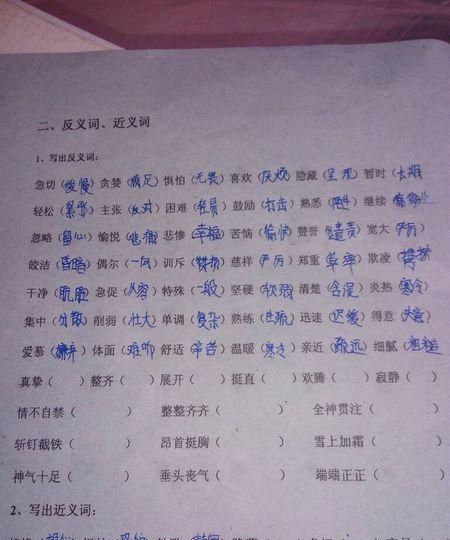 二、反义词、近义词
1、写出反义词：
急切（缓慢）贪婪（满足）惧怕（无畏）喜欢（厌烦）隐藏（呈现）暂时（长期）
轻松（紧张）主张（反对）困难（容易）鼓励（打击）熟悉（陌生）继续（）
忽略（留心）愉悦（悲痛）悲惨（幸福）苦恼（愉快）赞誉（谴责）宽大（严厉）
皎洁（昏暗）偶尔（一向）训斥（赞扬）慈祥（严厉）郑重（草率）欺凌（）
干净（肮脏）急促（从容）特殊（一般）坚硬（软弱）清楚（含混）炎热（寒冷）
集中（分散）削弱（壮大）单调（复杂）熟练（生疏）迅速（迟缓）得意（失意）
爱慕（嫌弃）体面（难听）舒适（辛苦）温暖（寒冷）亲近（疏远）细腻（粗糙）
真挚（ ）整齐（ ）展开（ ）挺直（ ）欢腾（ ）寂静（ ）
情不自禁（ ）整整齐齐（ ）全神贯注（ ）
斩钉截铁（ ）昂首挺胸（ ）雪上加霜（ ）
神气十足（ ）垂头丧气（ ）端端正正（ ）
2、写出近义词：